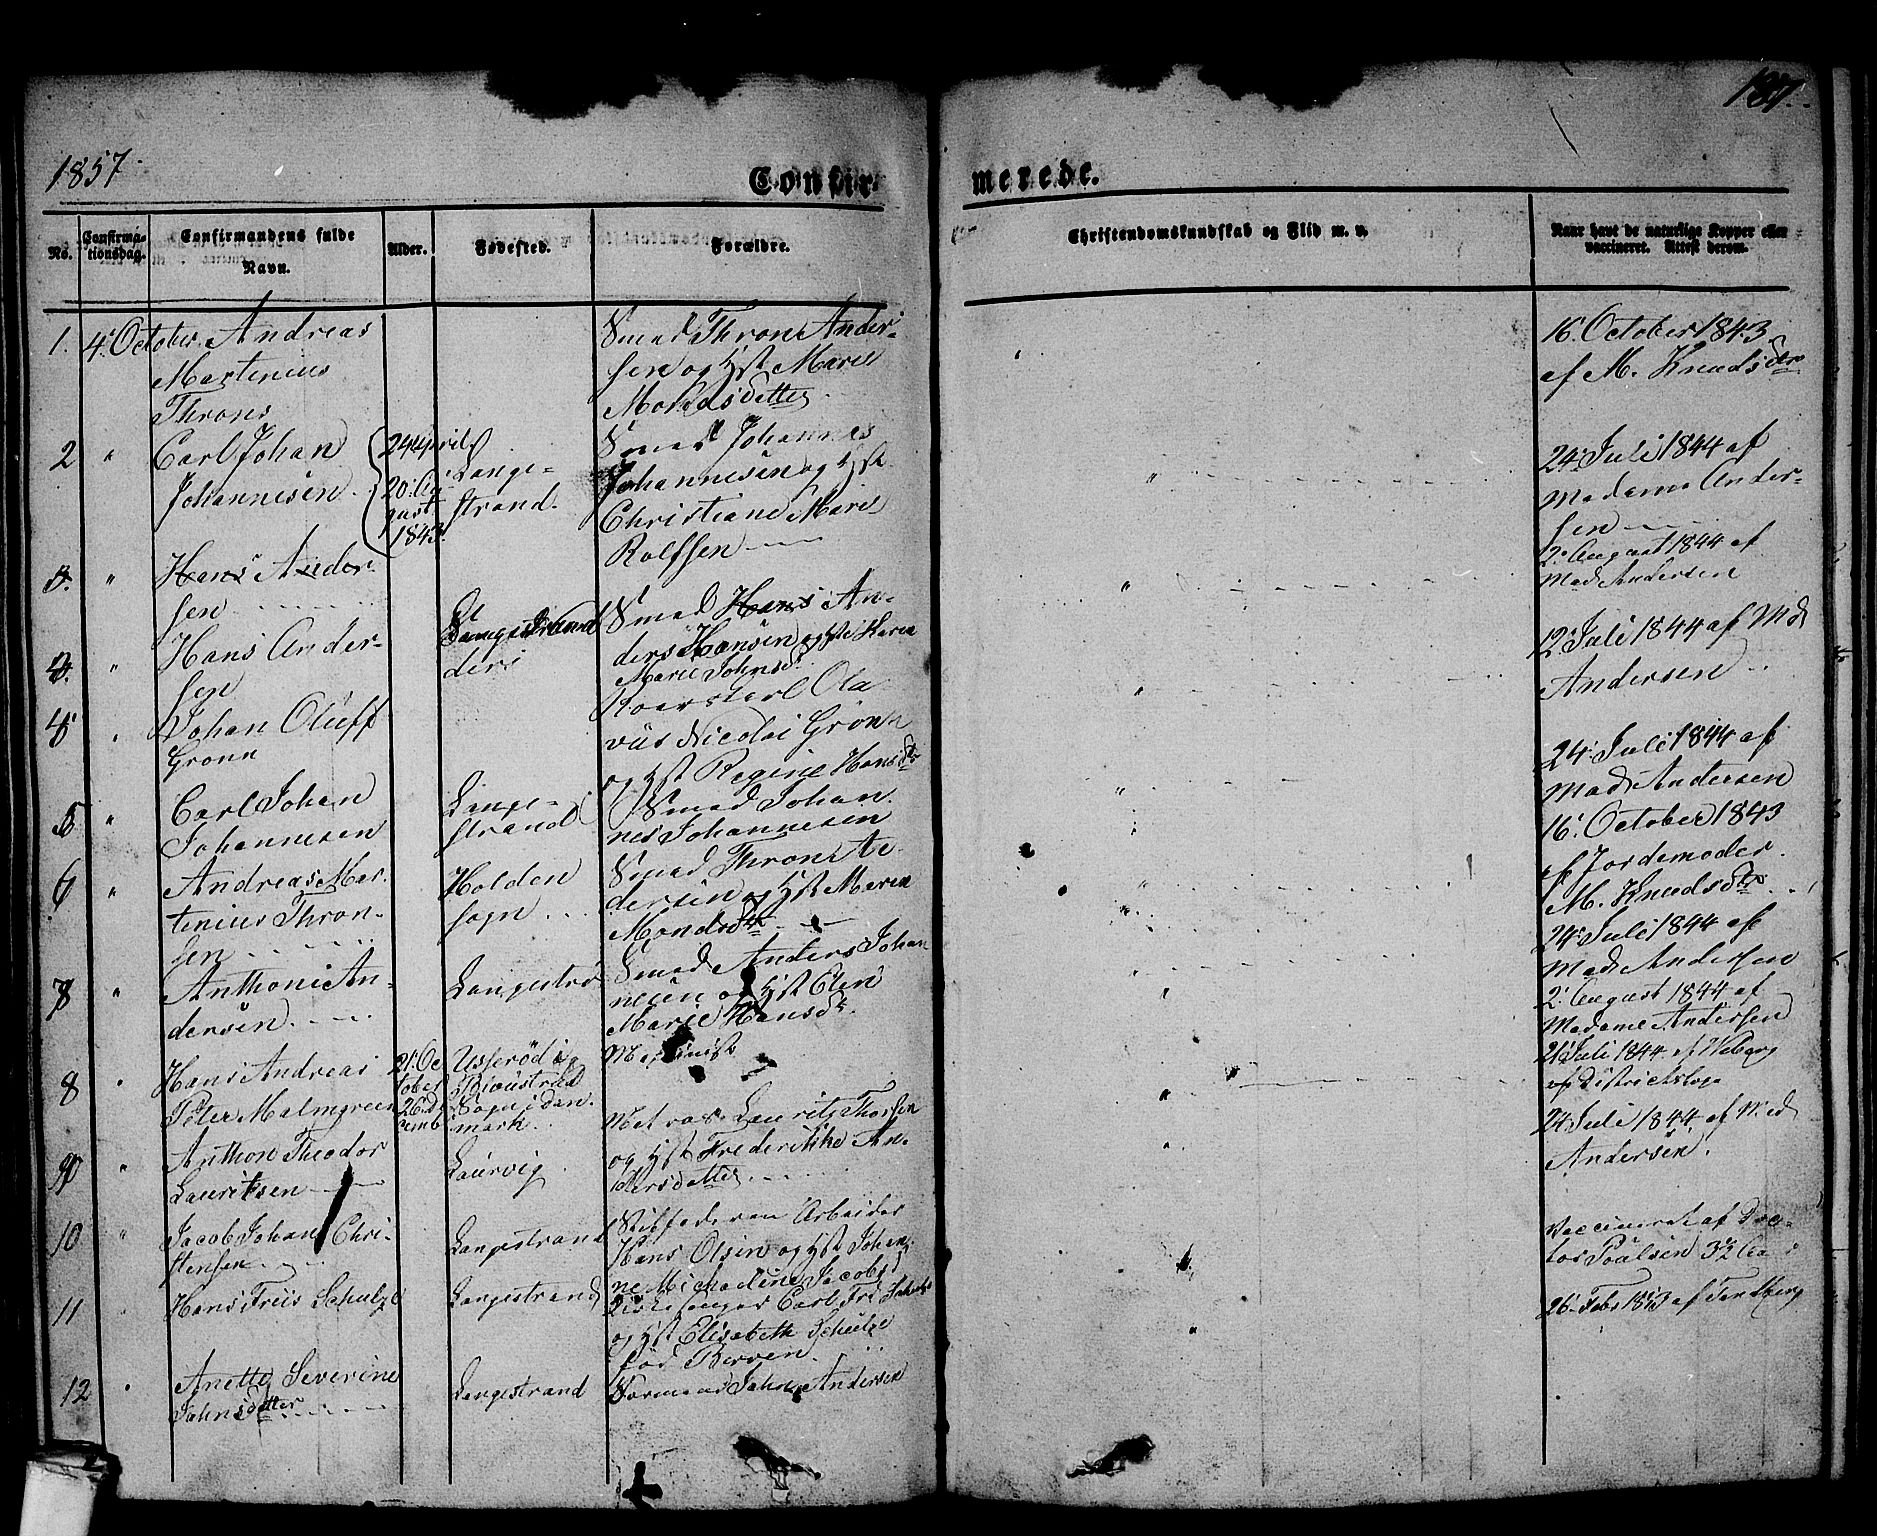 137.
1857
Confirmerede.
No.
Confirmationsdag.
Confirmandens fulde Navn.
Alder.
Fødested.
Forældre.
Christendomskundskab og Flid m. v.
Naar havt de naturlige Kopper eller vaccineret. Attest derom.
1. 4. October. Andreas
Martenius
Throns
Smed Thron Ander-
sen og Hst Maren
16 October 1843
af M. Knudsdtr
2 " Carl Johan
Johannesen
24 April
20 August
1843
Lange-
strand
Smed Johannes
Johannesen og Hst
Christiane Marie
Rolfsen
24 Juli 1844 af
Madame Ander-
sen
3. " Hans Ander-
sen
2. August 1844 af
Mad Andersen
3. " Hans Ander-
sen
Langestrand
Smed Hans An-
ders Hansen og Hst Karen
Marie Johnsd.
12 Juli 1844 af Md
Andersen
4 " Johan Oluff
Grønn
Ola-
vus Nicolai Grønn
og Hst Regine Hansdtr
24 Juli 1844 af
Mad Andersen
5 " Carl Johan
Johannesen
Lange-
strand
Smed Johan
nes Johannesen
16. October 1843
af Jordemoder
M. Knudsdtr
6 " Andreas Mar-
tenius Thron-
sen
Holden
sogn
Smed Thron An-
dersen og Hst Maren
24 Juli 1844 af
Mad Andersen
7 " Anthoni An-
dersen
Langestr
Smed Anders Johan
nesen og Hst Elen
Marie Hansd.
2. August 1844 af
Madame Andersen
8 " Hans Andreas
Peter Malmgreen
21 Oc
tober
Sogn i Dan
mark
Maskinist
21 Juli 1844 af Wiborg
Districtslæge
9 " Anthon Theodor
Lauritsen
Laurvig
Matros Lauritz Thorsen
og Hst Frederikke An-
dersdatter
24 Juli 1844 af Mad
Andersen
10 " Jacob Johan Chri-
stensen
Langestrand
Arbeider
Hans Olsen og Hst Johan-
ne Michaeline Jacobs
Vaccineret af Doc-
tor Poulsen
11 " Hans Friis Schulze
Langestrand
Kirkesanger Carl Fr. Schulze
og Hst Elisabeth Schulze
fød
26 Febr 1843 af Tandberg
12 " Anette Severine
Johnsdatter
Langestrand
Formand John Andersen